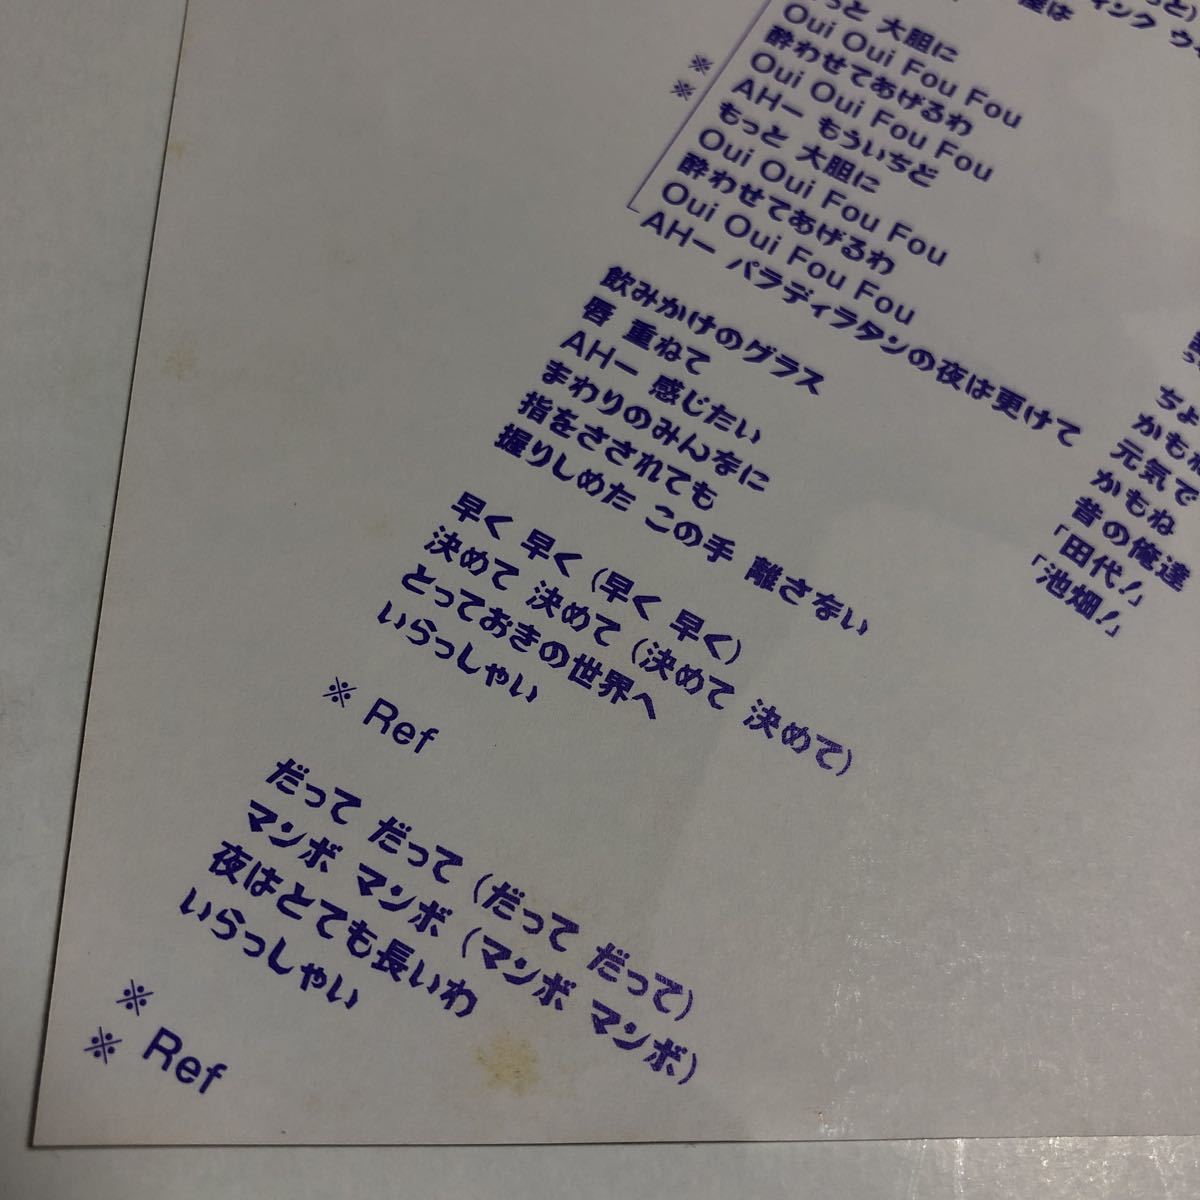 っと)
ィンク ウ
屋は
もっと 大胆に
Oui Oui Fou Fou
酔わせてあげるわ
Oui Oui Fou Fou
AHー もういちど
もっと 大胆に
Oui Oui Fou Fou
酔わせてあげるわ
Oui Oui Fou Fou
AHー パラディラタンの夜は更けて
※
※
飲みかけのグラス
唇 重ねて
AHー 感じたい
まわりのみんなに
指をさされても
握りしめた この手 離さない
早く 早く (早く 早く)
決めて 決めて (決めて 決めて)
とっておきの世界へ
いらっしゃい
※ Ref
だって だって (だって だって)
マンボ マンボ (マンボ マンボ)
夜はとても長いわ
いらっしゃい
※
※ Ref
ちょ
かもね
元気で
かもね
昔の俺達
「田代!」
「池畑!」